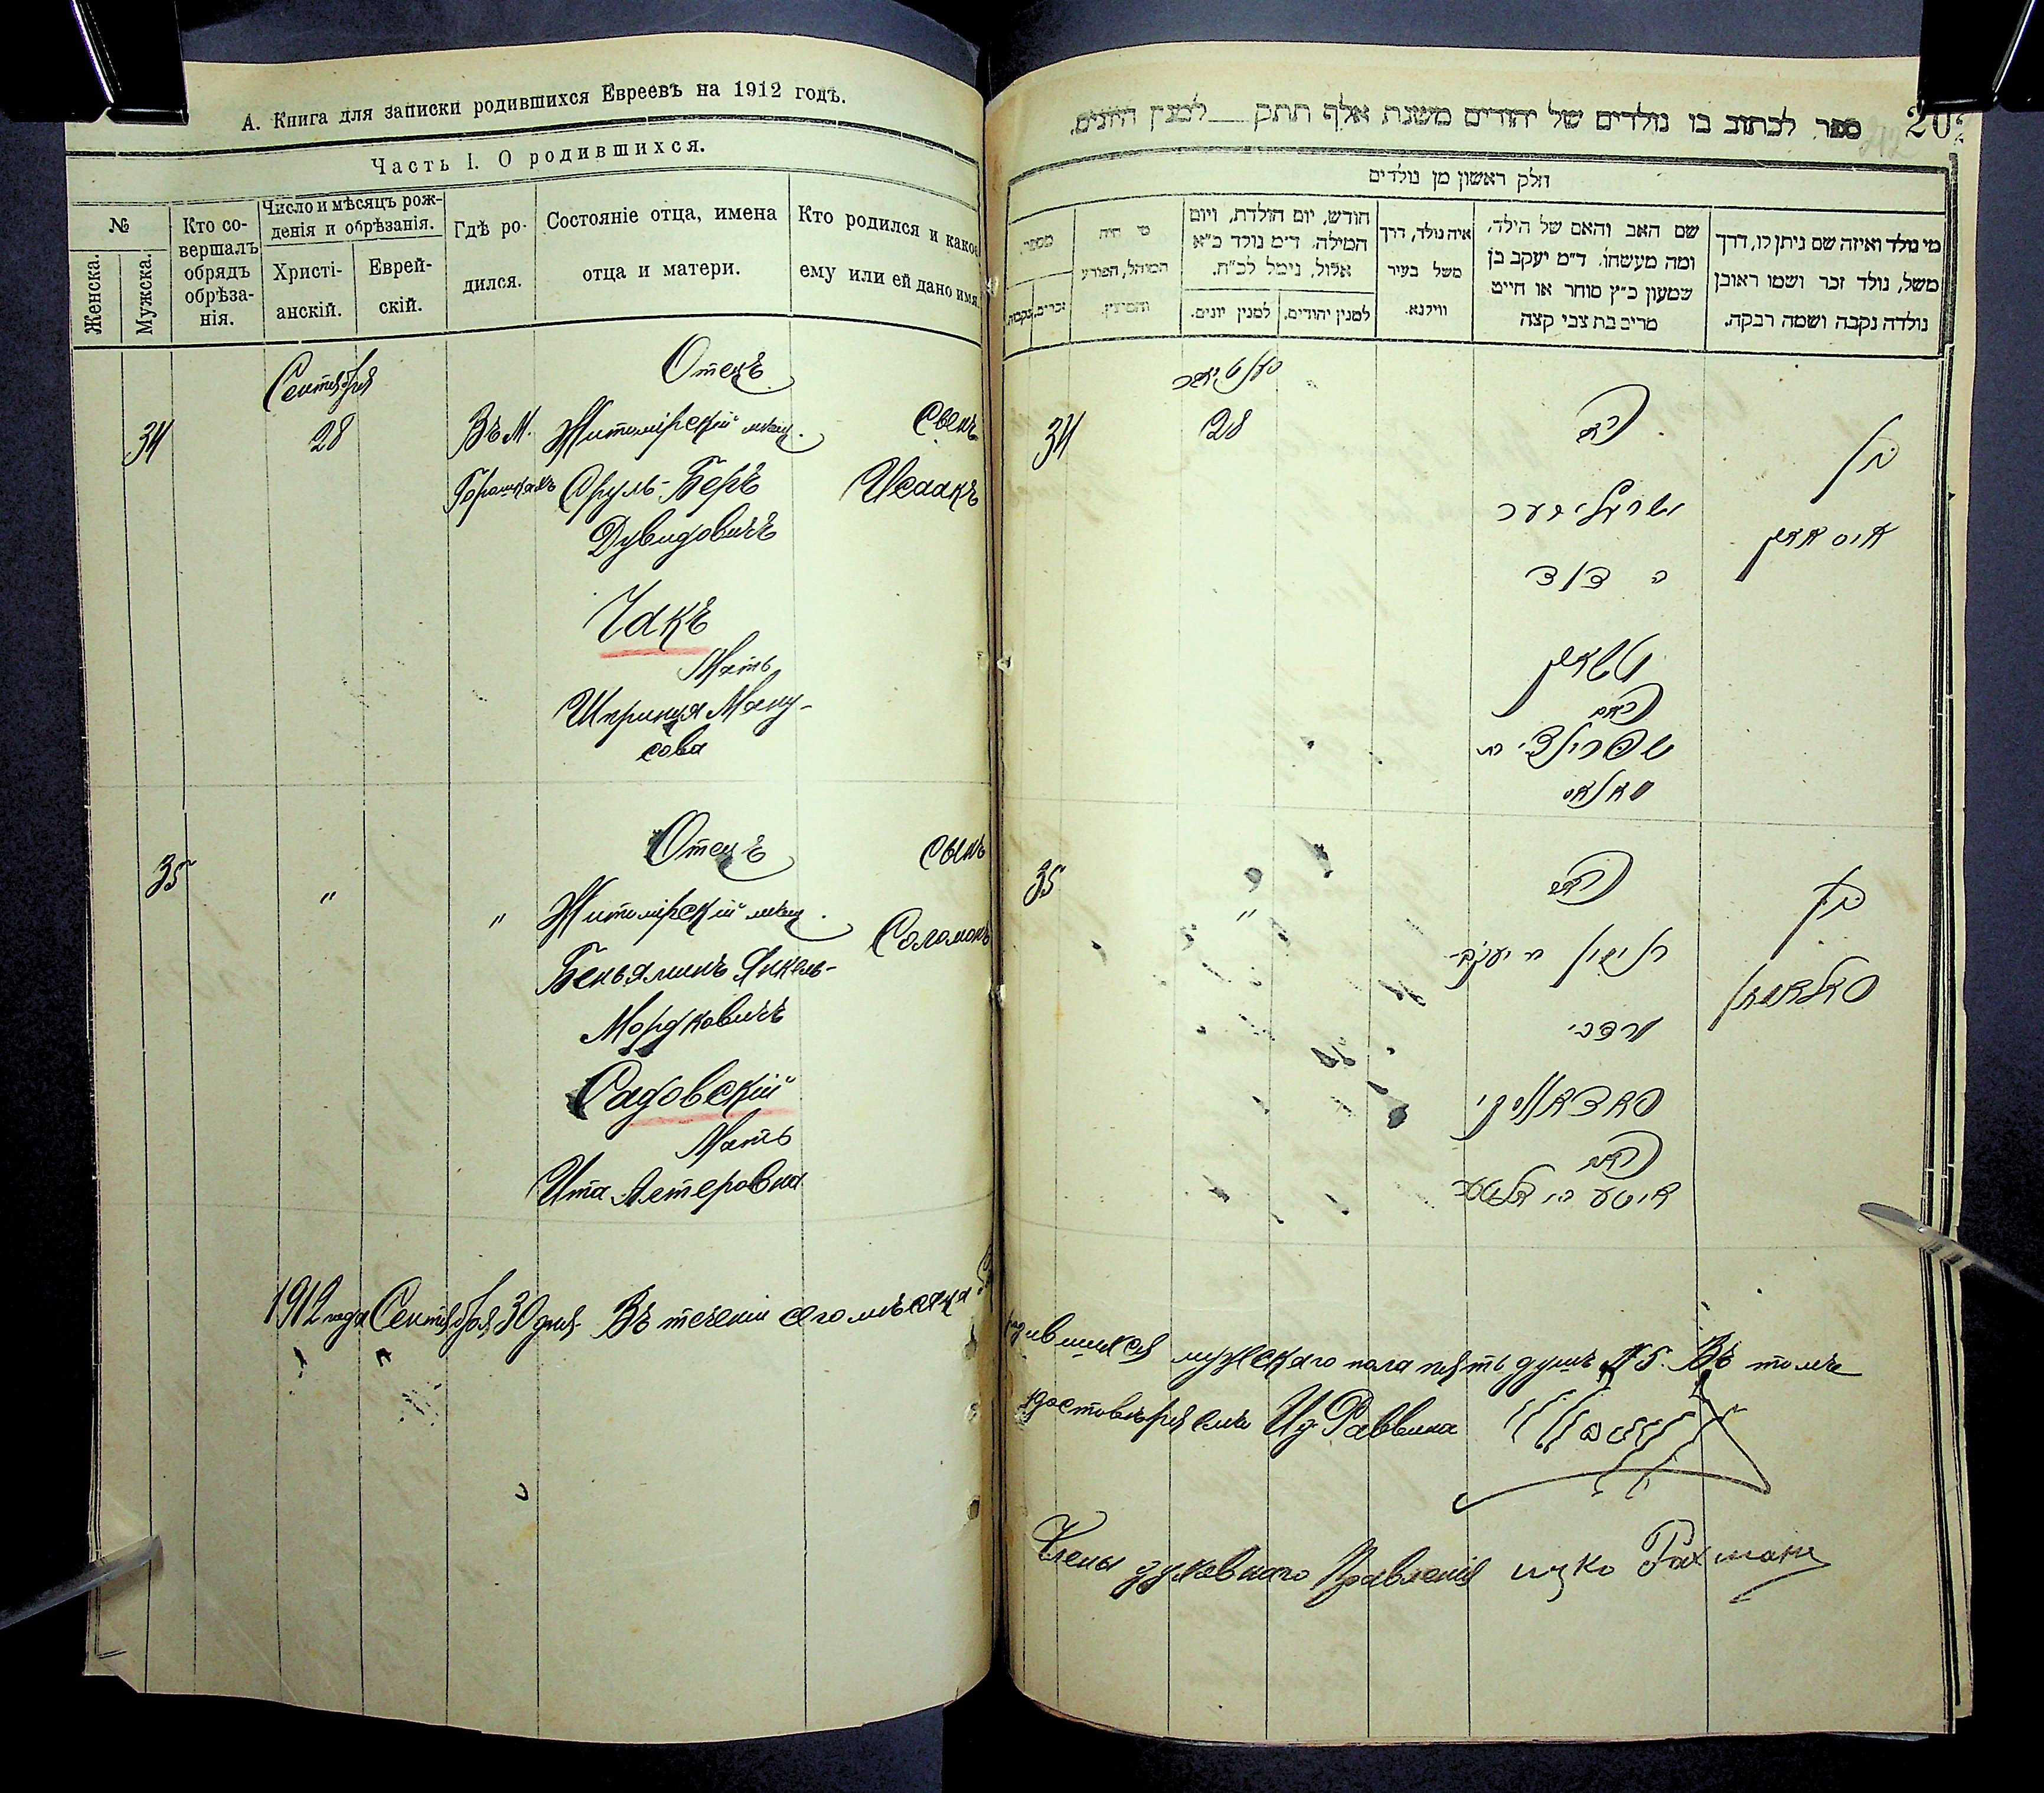 А. Книга для записки родившихся Евреевъ на 1912 годъ.
Часть I. О родившихся.
№
Женска.
Мужска.
Кто со-
вершалъ
обрядъ
обрѣза-
нія.
Число и мѣсяцъ рож-
денія и обрѣзанія.
Христі-
анскій.
Еврей-
скій.
Гдѣ ро-
дился.
Состояніе отца, имена
отца и матери.
Кто родился и какое
ему или ей дано имя
Сентября
34
28
Въ М.
Горошкахъ
Отецъ
Житомірскій мѣщ.
Сруль-Беръ
Дувидовичъ
Чакъ
Мать
Шпринця Ману-
сова
Сынъ
Исаакъ
35
"
"
Отецъ
Житомірскій мѣщ.
Беньяминъ Янкель-
Мордковичъ
Садовскій
Мать
Ита Алтеровна
Сынъ
Соломонъ
1912 года Сентября 30 дня. Въ теченіи сего мѣсяца
ספר לכתוב בו נולדים של יהודים משנת אלף תתק ___ למנין היונים.
202
חלק ראשון מן נולדים
מי נולד ואיזה שם ניתן לו, דרך
משל, נולד זכר ושמו ראובן
נולדה נקבה ושמה רבקה.
שם האב והאם של הילד,
ומה מעשהו. ד״מ יעקב בן
שמעון כ״ץ סוחר או חייט
מרים בת צבי קצה
איה נולד, דרך
משל בעיר
ווילנא.
חודש, יום הולדת, ויום
המילה. ד״מ נולד כ״א
אלול, נימל לכ״ח.
למנין יהודים.
למנין יונים.
מי היה
המוהל, הפורע
והמוצץ.
מספר
זכרים.
נקבות.
34
28
בן
איסאאק
ישראל בער
ב דוד
טשאק
שפרינצי ב
מאנאס
35
"
בן
סאלאמאן
בנימין ב יעקב
מרדכי
סאדאווסקי
איטע ב אלטער
родившихся мужескаго пола пять душъ №5. Въ томъ
удостовѣряемъ Ид Раввина
Члены духовнаго Правленія ицко Рахманъ